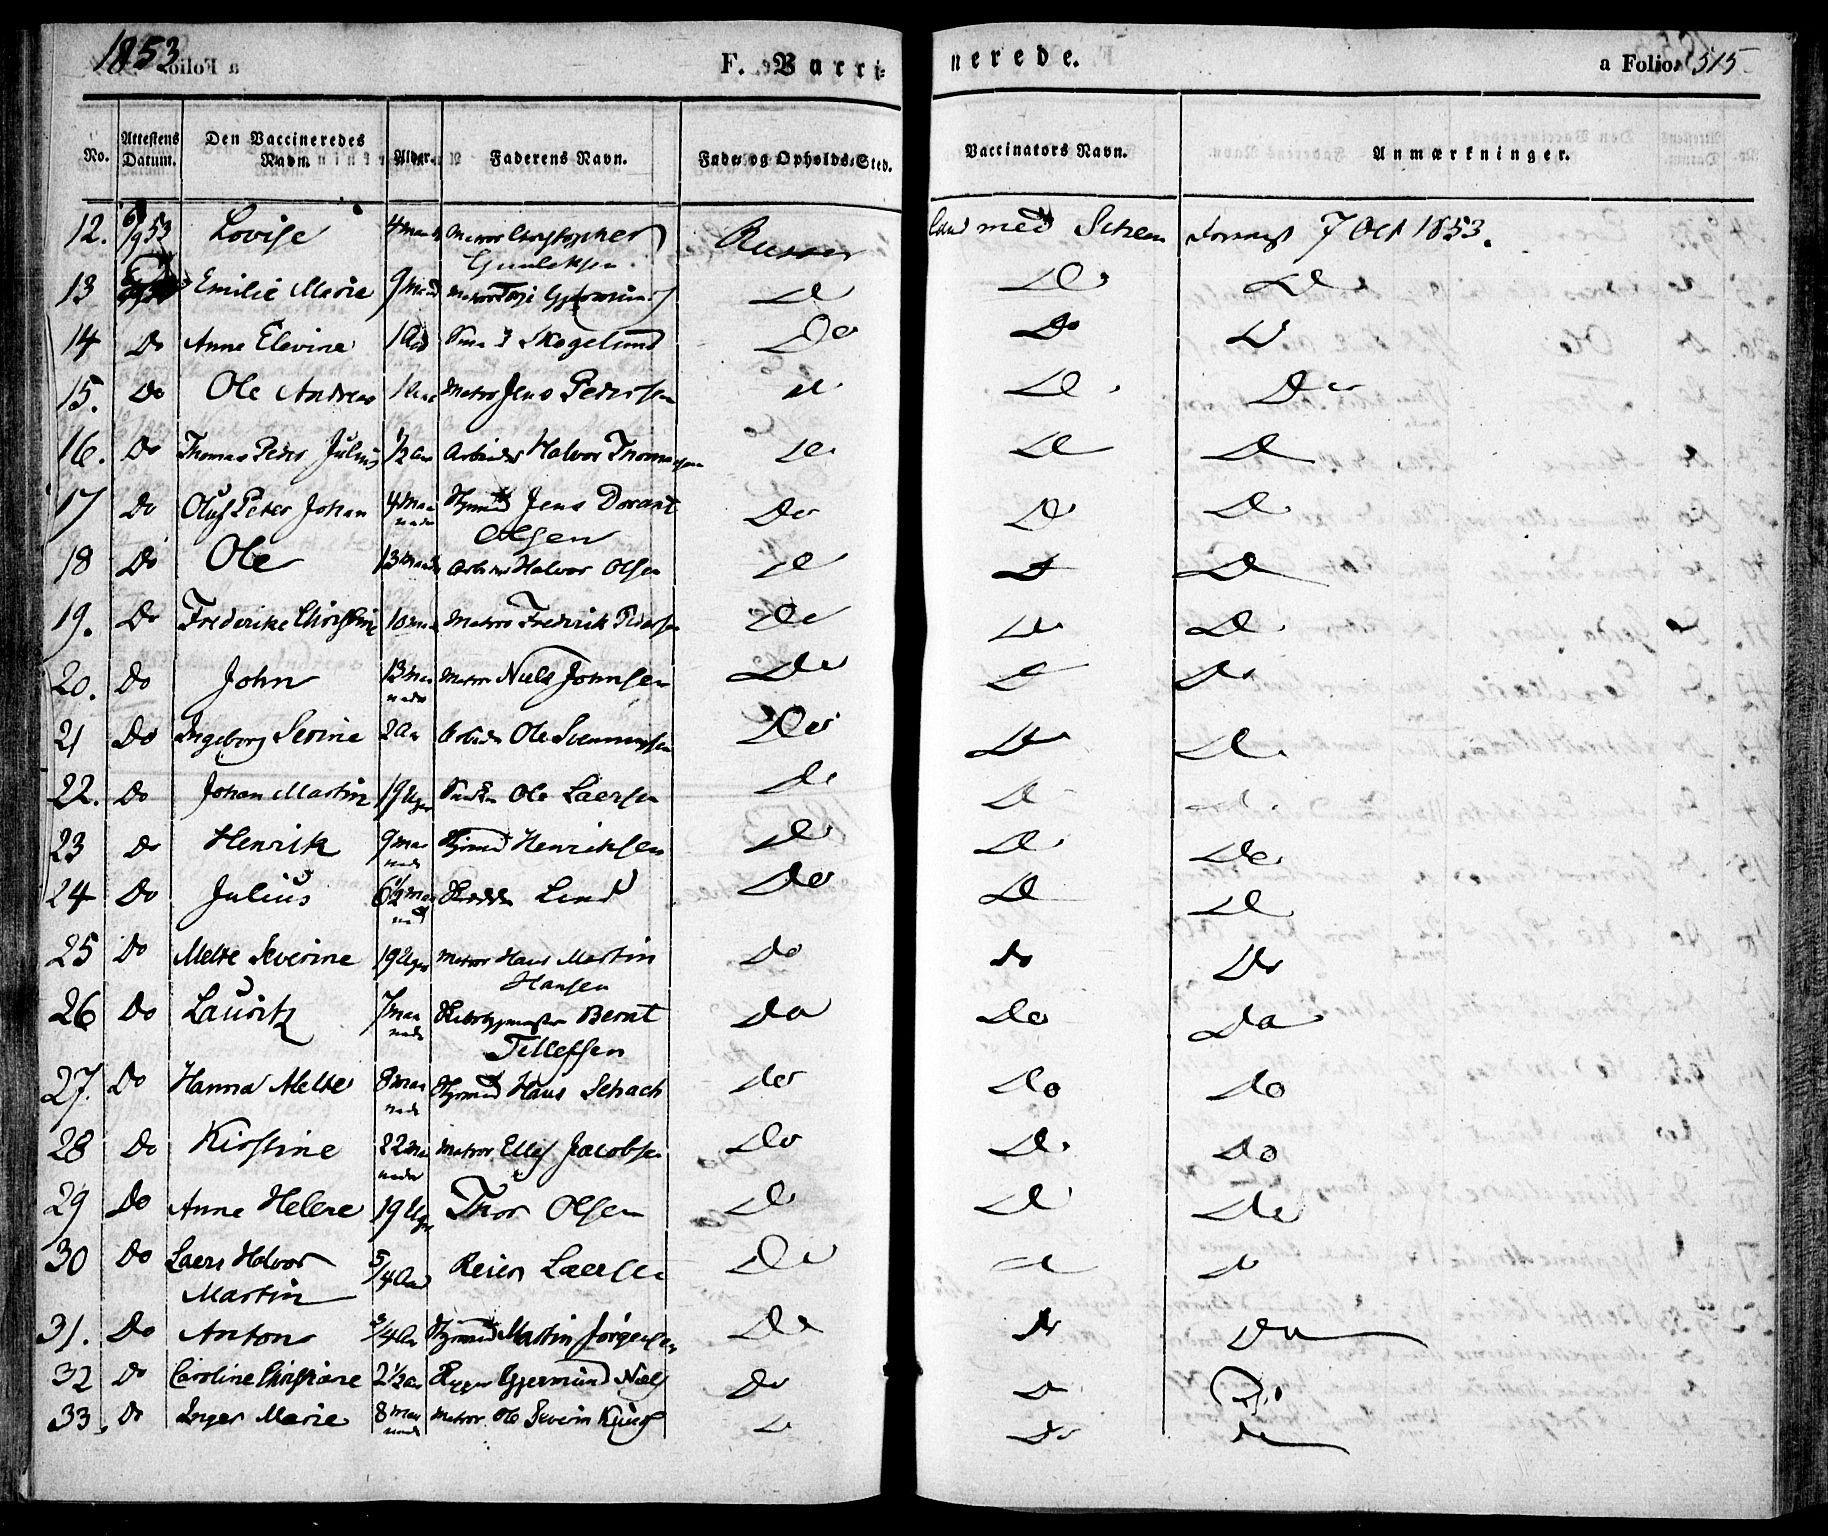 1853
F. Vaccinerede.
a Folio 515
No. Attestens Datum. Den Vaccineredes Navn. Alder. Faderens Navn. Føde- og Opholds-Sted. Vaccinators Navn. Anmærkninger.
12. 6/9 53 Lovise 4 Christopher med 7 Oct 1853.
13 Emilie Marie 9 Do Do Do
14 Do Anne Elevine 1 Skogelund Do Do Do
15. Do Ole Andreas 1 Matros Jens Pedersen Do Do Do
16. Do Thomas Peder Julius 1/2 Aar Arbeider Halvor Thomasen Do Do Do
17 Do Oluf Peter Johan 4 Maa Jens Dorant Do Do Do
neder Olsen
18 Do Ole 13 Arbeider Halvor Olsen Do Do Do
19. Do Frederike Christine 10 Matros Frederik Pedersen Do Do Do
20. Do John 13 Maa Matros Niels Johnsen Do Do Do
neder
21 Do Ingeborg Serine 2 Aar Arbeider Ole Do Do Do
22. Do Johan Martin 19 Uger Ole Laersen Do Do Do
23 Do Henrik 9 Maa Henriksen Do Do Do
neder
24 Do Julius 6 1/2 Maa Lind Do Do Do
ned
25 Do Melte Severine 19 Uger Matros Hans Martin Do Do Do
Hansen
26 Do Lauritz 7 Maa Bernt Do Do Do
neder Tellefsen
27. Do Hanna Melte 8 Maa Hans Schach Do Do Do
neder
28 Do Kirstine 22 Maa Matros Ellef Jacobsen Do Do Do
neder
29 Do Anne Helene 19 Uger Thor Olsen Do Do Do
30 Do Laers Halvor 5/4 Aar Reier Laersen Do Do Do
Martin
31. Do Anton 3/4 Aar Martin Jørgensen Do Do Do
32 Do Caroline Christiane 2 1/2 Aar Gjermund Do Do Do
33. Do Inger Marie 8 Maa Matros Ole Severin Do Do Do
neder